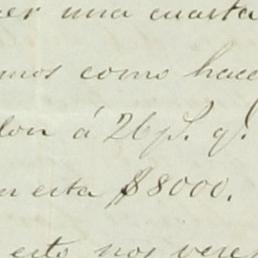 er una cuarta
mos como hace
lon á 26 p%. q.
en esta $8000.
esto nos vere